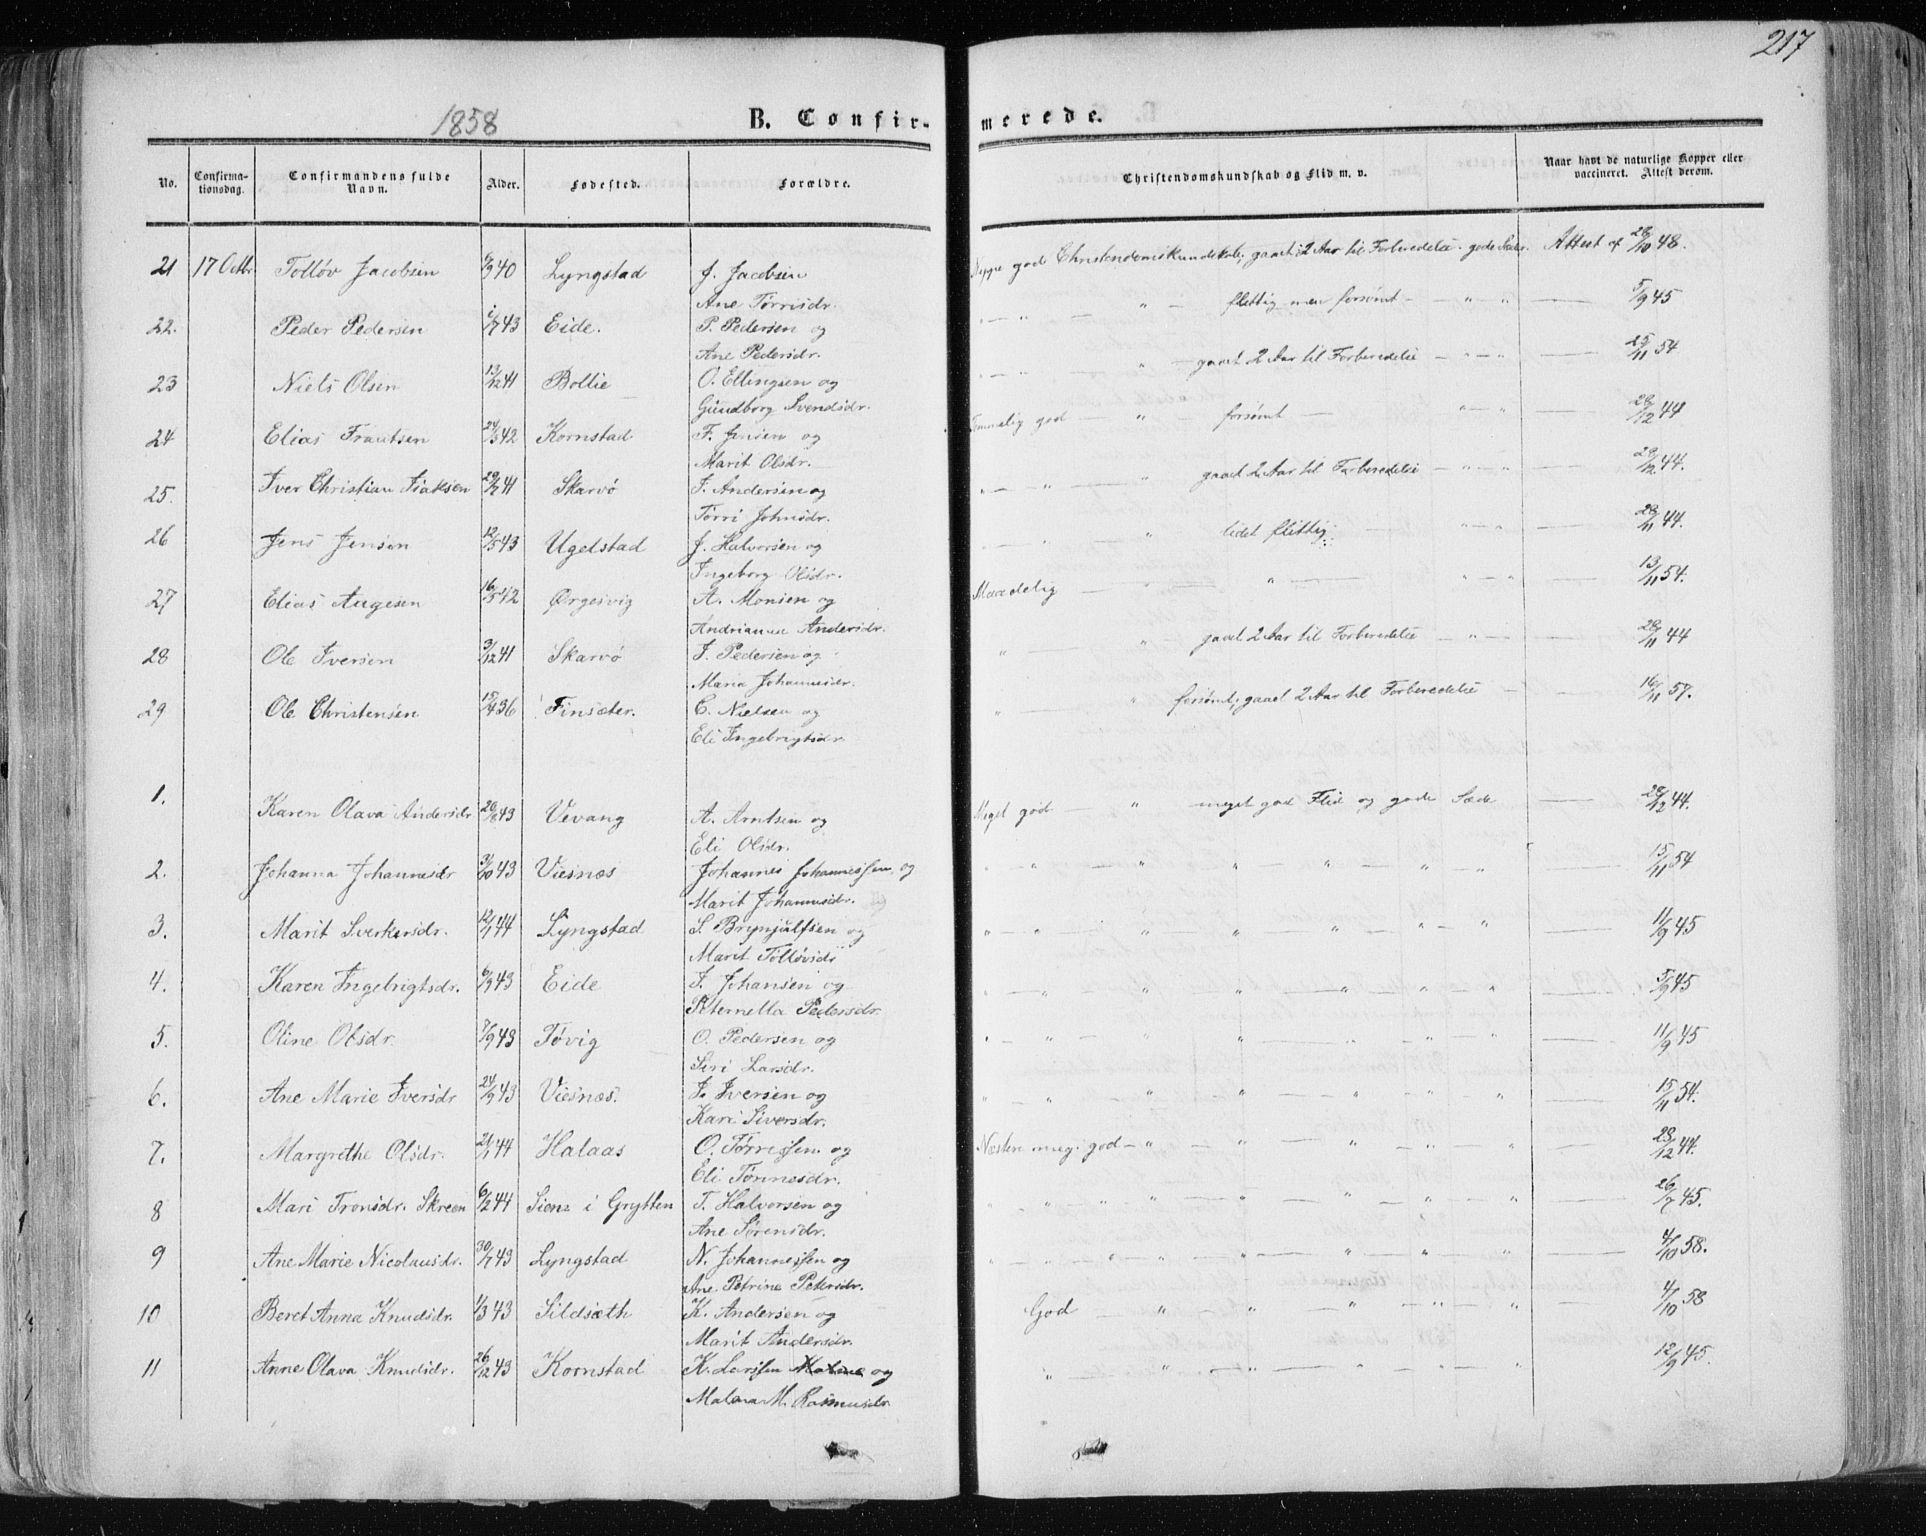 217
1858
B. Confirmerede.
No. Confirmationsdag. Confirmandens fulde Navn. Alder. Fødested. Forældre. Christendomskundskab og Flid m. v. Naar havt de naturlige Kopper eller vaccineret. Attest derom.
21 17 Octbr Tolløv Jacobsen 40 Lyngstad J. Jacobsen god Christendomskundskab; gaaet 2 Aar til Forberedelse. gode Sæder. Attest af 28/10 48.
Ane Tørrisdr.
22. Peder Pedersen 43 Eide. P. Pedersen og " — " — " — flittig men forsømt — " " — 5/9 45
Ane Pedersdr.
23 Niels Olsen 13/12 41 Bollie O. Ellingsen og " — " — " — gaaet 2 Aar til Forberedelse — " — " — 25/11 54
Gundborg Svendsdr.
24 Elias Frantsen 24/5 42 Kornstad F. Jensen og Temmelig god — " forsømt — " — " — 28/12 44
Marit Olsdr.
25. Iver Christian Isaksen 29/7 41 Skarvø I. Andersen og " — " — " gaaet 2 Aar til Forberedelse — " — " — 28/12 44.
Tørri Johnsdr.
26 Jens Jensen 12/5 43 Ugelstad J. Halvorsen og " — " — " lidet flittig. — " — " — 28/11 44.
Ingeborg Olsdr.
27 Elias Augesen 16/5 42 Ørgesvig A. Monsen og Maadelig — " — " — " — " — 13/11 54.
Andrianna Andersdr.
28 Ole Iversen 3/12 41 Skarvø I. Pedersen og " — " gaaet 2 Aar til Forberedelse — " — 28/11 44
Maria Johannesdr.
29 Ole Christensen 15/4 36 Finsæter. C. Nielsen og " — " forsømt; gaaet 2 Aar til Forberedelse — " — 16/11 57.
Eli Ingebrigtsdr
1. Karen Olava Andersdr 20/8 43 Vevang A. Arntsen og Meget god — " meget god Flid og gode Sæde — 28/12 44.
Eli Olsdr.
2. Johanna Johannesdr 3/10 43 Viesnæs Johannes Johannessen og " — " — " — " — " — " — " — 15/11 54
Marit Johannesdr.
3. Marit Sverkersdr. 12/1 44 Lyngstad S. Brynjulfsen og " — " — " — " — " — " — " — 11/9 45
Marit Tolløvsdr
4. Karen Ingebrigtsdr. 6/9 43 Eide I. Johansen og " — " — " — " — " — " — " — 5/9 45
Peternella Pedersdr.
5. Oline Olsdr. 7/9 43 Tøvig O. Pedersen og " — " — " — " — " — " — " — 11/9 45
Siri Larsdr.
6. Ane Marie Iversdr 24/9 43 Viesnæs. I. Iversen og " — " — " — " — " — " — " — 15/11 54.
Kari Siversdr.
7. Margrethe Olsdr. 21/1 44 Halaas O. Tørrissen og Næsten meg. god — " — " — " — " — " — 28/12 44.
Eli Tønnesdr.
8 Mari Tronsdr. Skreen 6/2 44 Siem i Grytten T. Halvorsen og " — " — " — " — " — " — " — 26/7 45.
Ane Sørensdr.
9 Ane Marie Nicolausdr. 30/7 43 Lyngstad N. Johannessen og " — " — " — " — " — " — " — 4/10 58.
Ane Petrine Petersdr.
10 Beret Anna Knudsdr. 1/3 43 Sildsæth K. Andersen og God — " — " — " — " — " — 4/10 58
Marit Andersdr.
11 Anne Olava Knudsdr. 26/12 43 Kornstad K. Larssen og " — " — " — " — " — " — 12/9 45.
Malena M. Rasmusdr